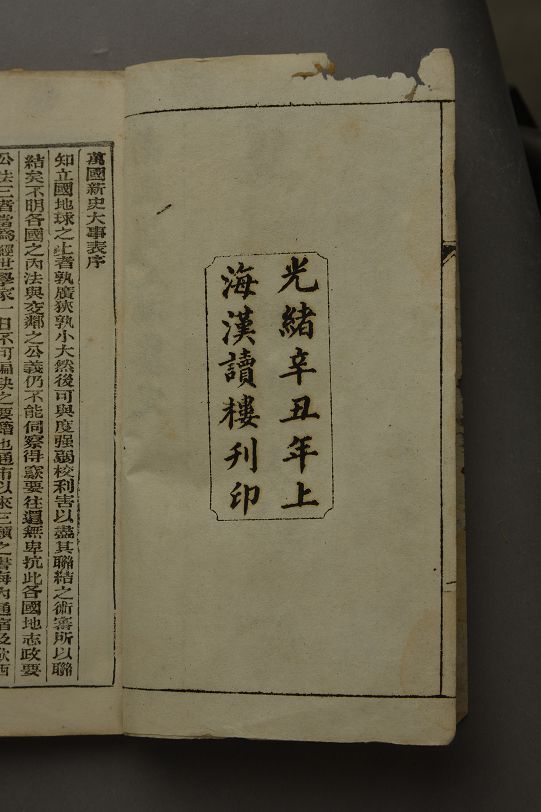 光緒辛丑年上
海漢讀樓刊印
萬國新史大事表序
知立國地球之上者孰廣狹孰小大然後可與度强弱校利害以盡其聯結之術審所以聯
結矣不明各國之內法與交鄰之公義仍不能伺察得窽要往還無卑抗此各國地志政要
公法三者當爲經世學家一日不可偏缺之要籍也通商以來三類之書海內通